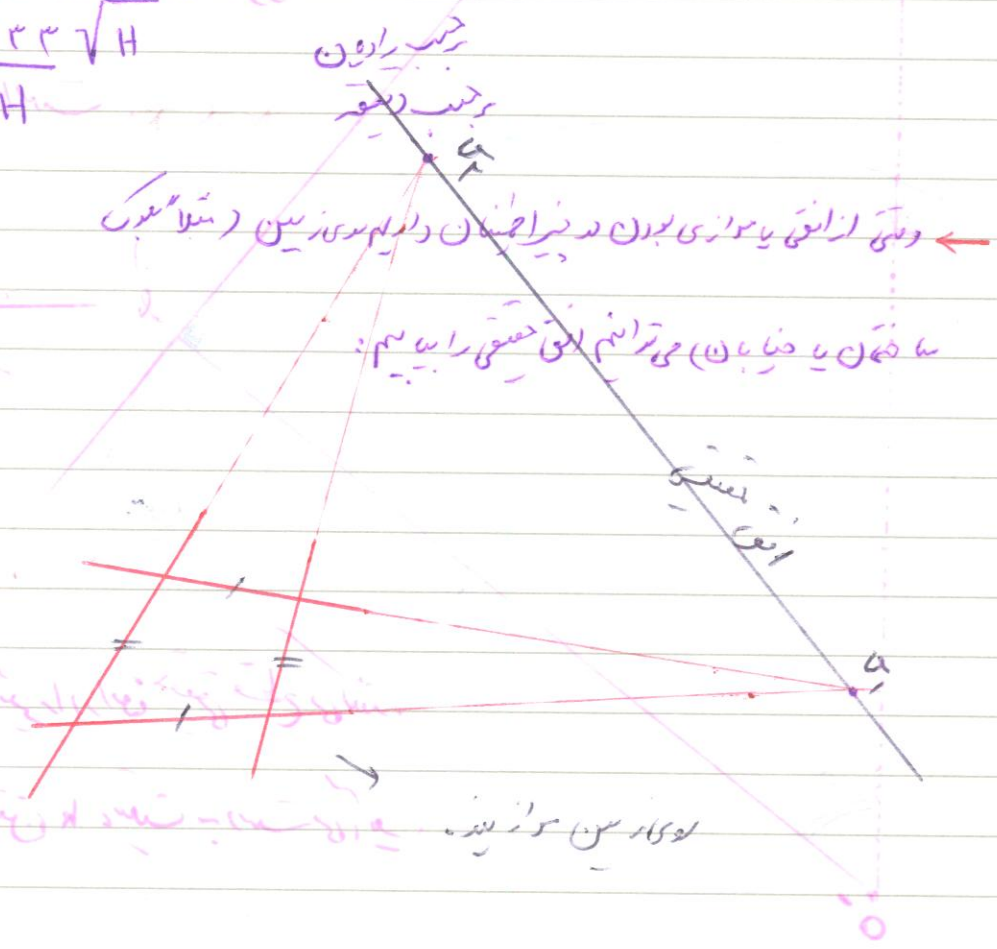 ۳۳ √H
H
برحسب رادیان
برحسب دقیقه
a۲
← وقتی از افقی یا موازی بودن دو چیز اطمینان داریم روی زمین (مثلاً بلوک
ساختمان یا خیابان) می‌توانیم افق حقیقی را بیابیم:
افق حقیقی
a۱
روی زمین موازیند.